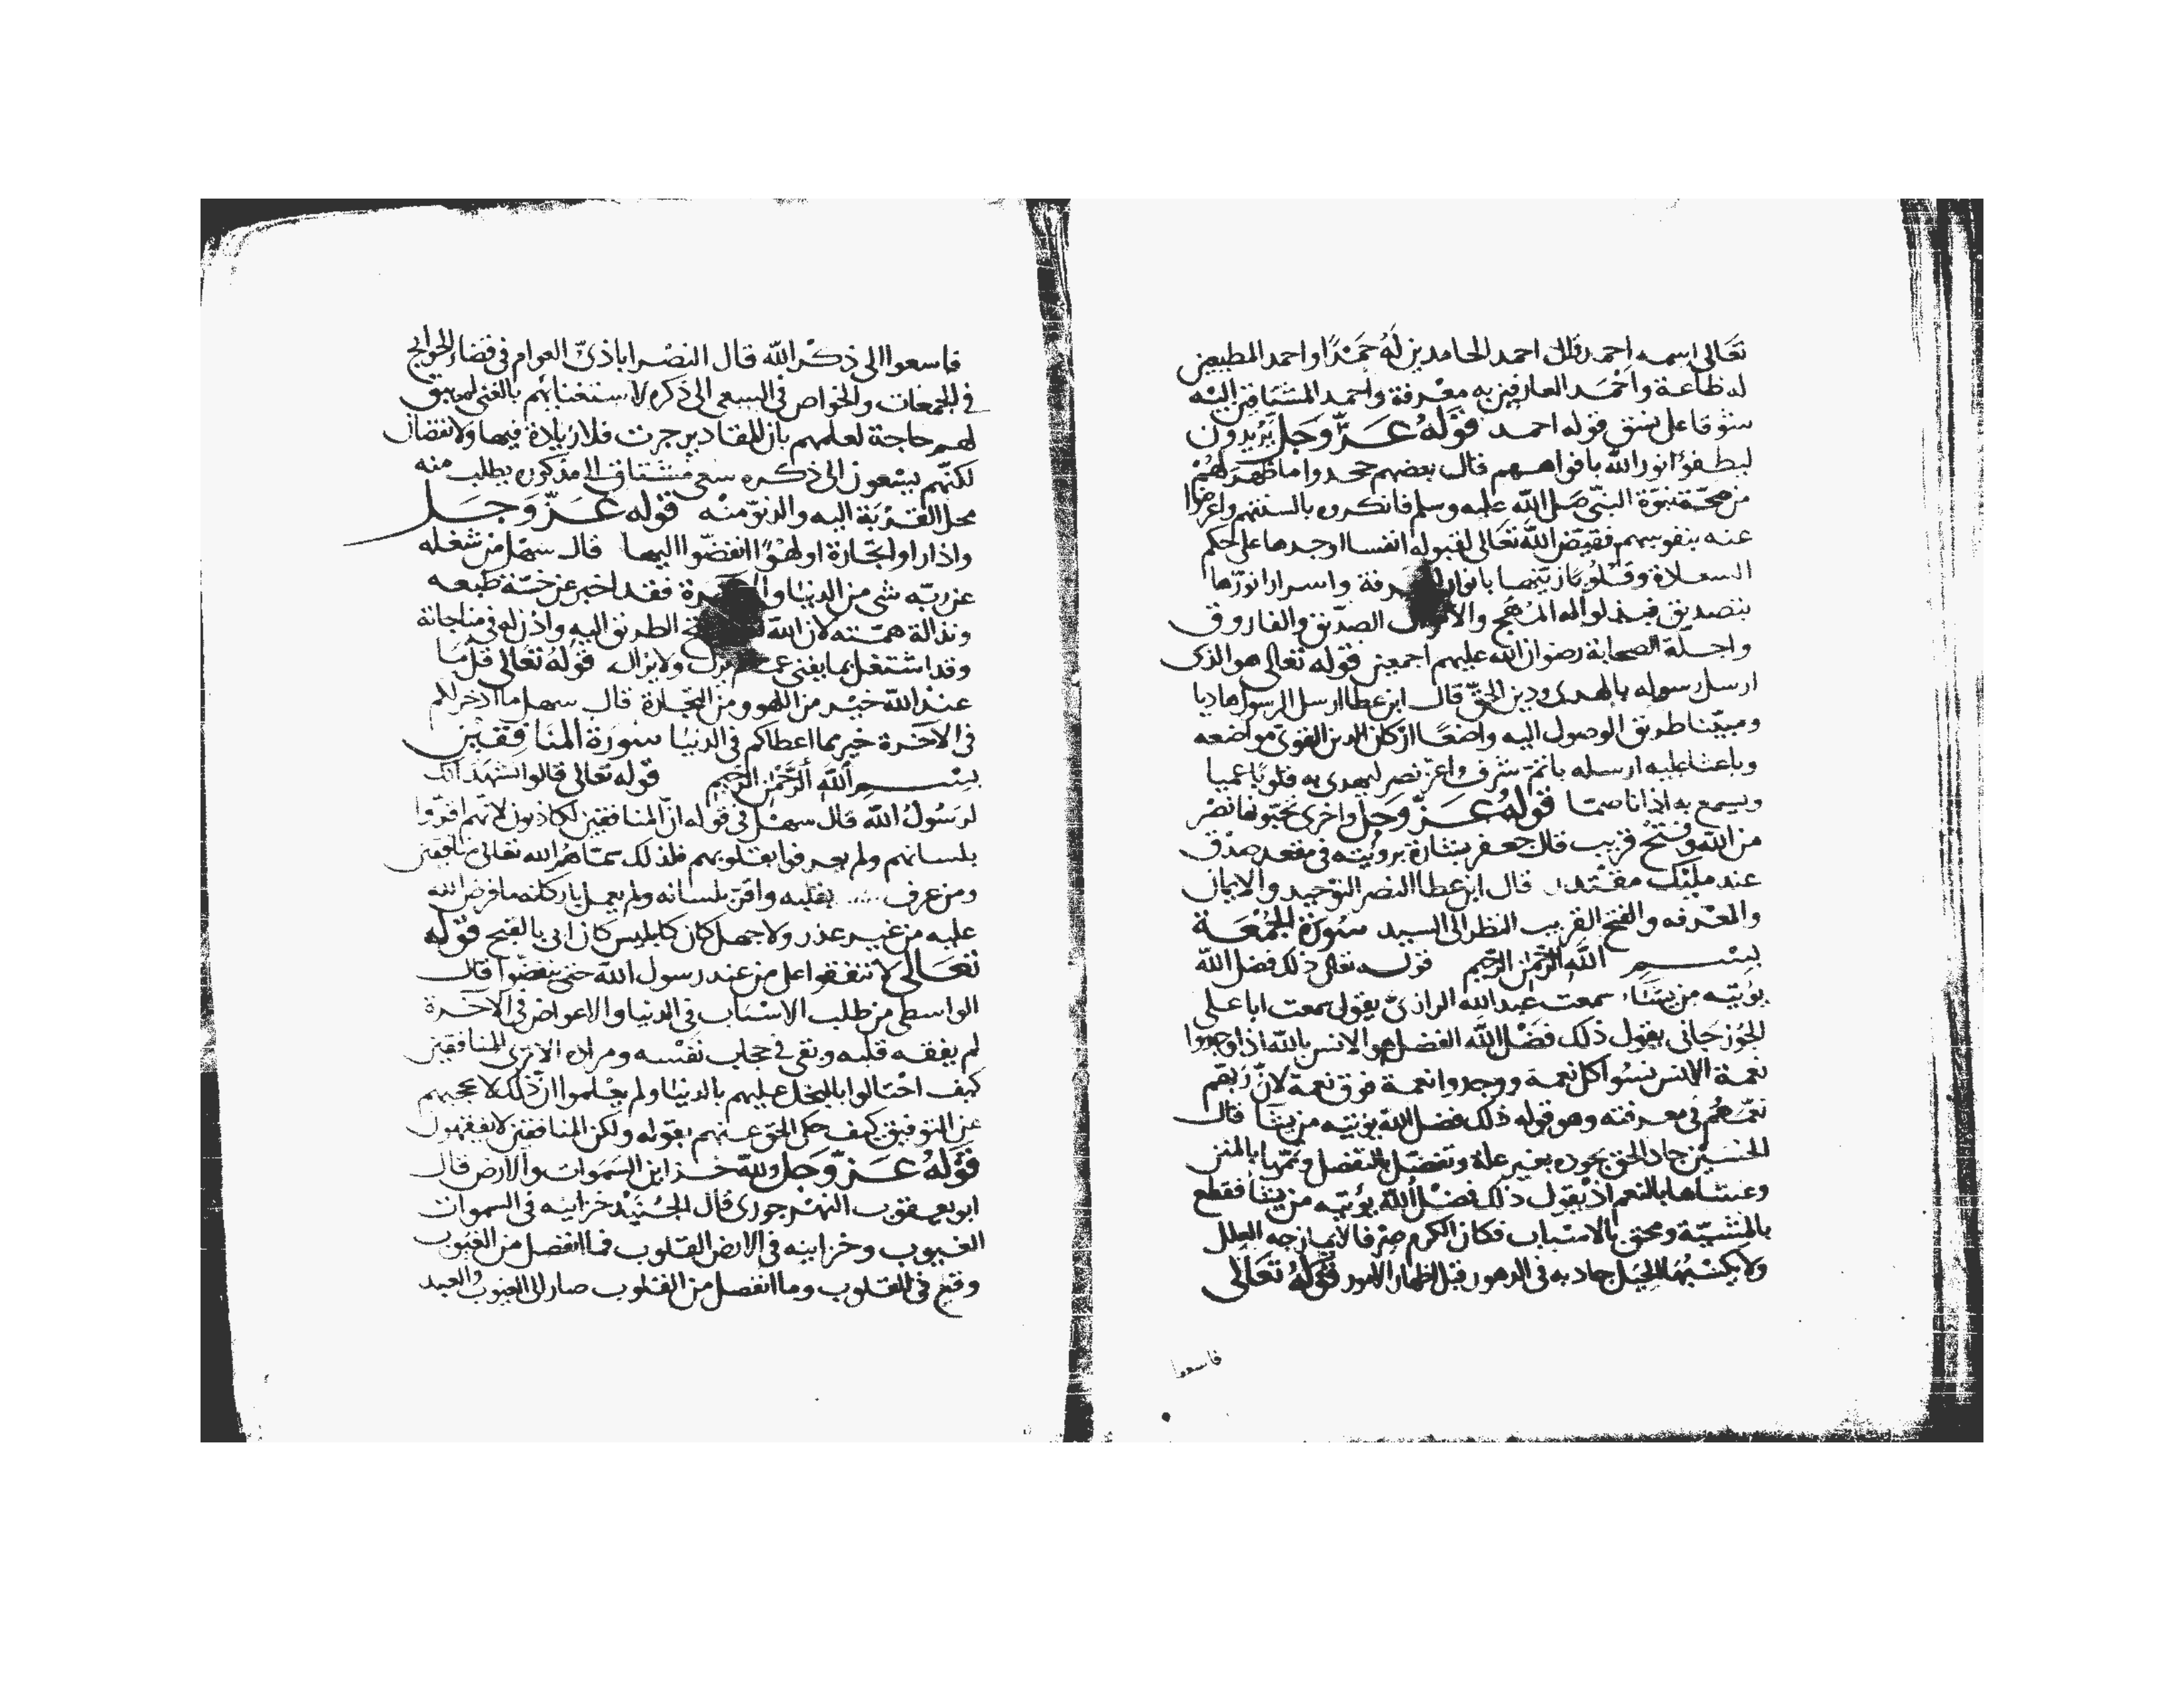 تعالى اسمه احمد قال احمد الحامدين له حمدا واحمد المطيعين
له طاعة واحمد العارفين به معرفة واحمد المشتاقين اليه
شوقا على نسق قوله احمد قوله عز وجل يريدون
ليطفؤا نور الله بافواههم قال بعضهم جحدوا ما ظهر لهم
من صحة نبوة النبي صلى الله عليه وسلم فانكروه بالسنتهم واعرضوا
عنه بنفوسهم فقيض الله تعالى لقبوله انفسا اوجدها على حكم
السعادة وقلوبا زينها بانوار واسرارا نورها
بتصديق فبذلوا له المهج والاموال الصديق والفاروق
واجلة الصحابة رضوان الله عليهم اجمعين قوله تعالى هو الذى
ارسل رسوله بالهدى ودين الحق قال ابن عطا ارسل الرسول هاديا
ومبينا طريق الوصول اليه واضعا اركان الدين القوى مواضعه
وباعثا عليه ارسله باتم شرف واعز نصر ليهدى به قلوبا عميا
ويسمع به اذانا صما قوله عز وجل واخرى تحبونها نصر
من الله وفتح قريب قال جعفر بشارة برويته فى مقعد صدق
عند مليك مقتدر قال ابن عطا النصر التوحيد والايمان
والمعرفه والفتح القريب النظر الى السيد سورة الجمعة
بسم الله الرحمن الرحيم قوله تعالى ذلك فضل الله
يؤتيه من يشاء سمعت عبد الله الرازى يقول سمعت ابا على
الجوزجانى يقول ذلك فضل الله الفضل هو الانس بالله اذا وجدوا
نعمة الانس نسوا كل نعمة ووجدوا نعمة فوق نعمة لان ربهم
نعمهم فى معرفته وهو قوله ذلك فضل الله يؤتيه من يشا قال
الحسين جاد الحق بجوده بغير علة وتفضل بالتفضل وتمها بالمنن
وغشاها بالنعم اذ يقول ذلك فضل الله يؤتيه من يشا فقطع
بالمشية ومحق بالاسباب فكان الكرم صرفا لا يمازجه العلل
ولا يكتسبها الحيل جاد به فى الدهور قبل اظهار الامور قوله تعالى
فاسعوا
فاسعوا الى ذكر الله قال النصراباذى العوام فى قضاء الحوائج
فى الجمعات والخواص فى السعى الى ذكره لاستغنايهم بالغنى لم يبق
لهم حاجة لعلمهم بان المقادير جرت فلا زيادة فيها ولا نقصان
لكنهم يسعون الى ذكره سعى مشتاق الى مذكوره يطلب منه
محل القربة اليه والدنو منه قوله عز وجل
واذا راوا تجارة او لهوا انفضوا اليها قال سهل من شغله
عن ربه شى من الدنيا فقد اخبر عن خسة طبعه
ونذالة همته لان الله الطريق اليه واذن له فى مناجاته
وقد اشتغل بما يفنى ولا يزال قوله تعالى قل ما
عند الله خير من اللهو ومن التجارة قال سهل ما ادخر لكم
فى الاخرة خير مما اعطاكم فى الدنيا سورة المنافقين
بسم الله الرحمن الرحيم قوله تعالى قالوا نشهد انك
لرسول الله قال سهل فى قوله ان المنافقين لكاذبون لانهم اقروا
بلسانهم ولم يعرفوا بقلوبهم فلذلك سماهم الله تعالى منافقين
ومن عرف بقلبه واقر بلسانه ولم يعمل باركانه ما فرض الله
عليه من غير عذر ولا جهل كان كابليس قوله
تعالى لا تنفقوا على من عند رسول الله حتى ينفضوا قال
الواسطى من طلب الاسباب فى الدنيا والاعواض فى الاخرة
لم يفقه قلبه وبقى فى حجاب نفسه ومراده الا ترى المنافقين
كيف احتالوا بالبخل عليهم بالدنيا ولم يعلموا ان ذلك لا يحجبهم
عن التوفيق كيف حكى الحق عنهم بقوله ولكن المنافقين لا يفقهون
قوله عز وجل ولله خزاين السموات والارض قال
ابو يعقوب النهرجورى قال الجنيد خزاينه فى السموات
الغيوب وخزاينه فى الارض القلوب فما انفصل من الغيوب
وقع فى القلوب وما انفصل من القلوب صار الى الغيوب والعبد